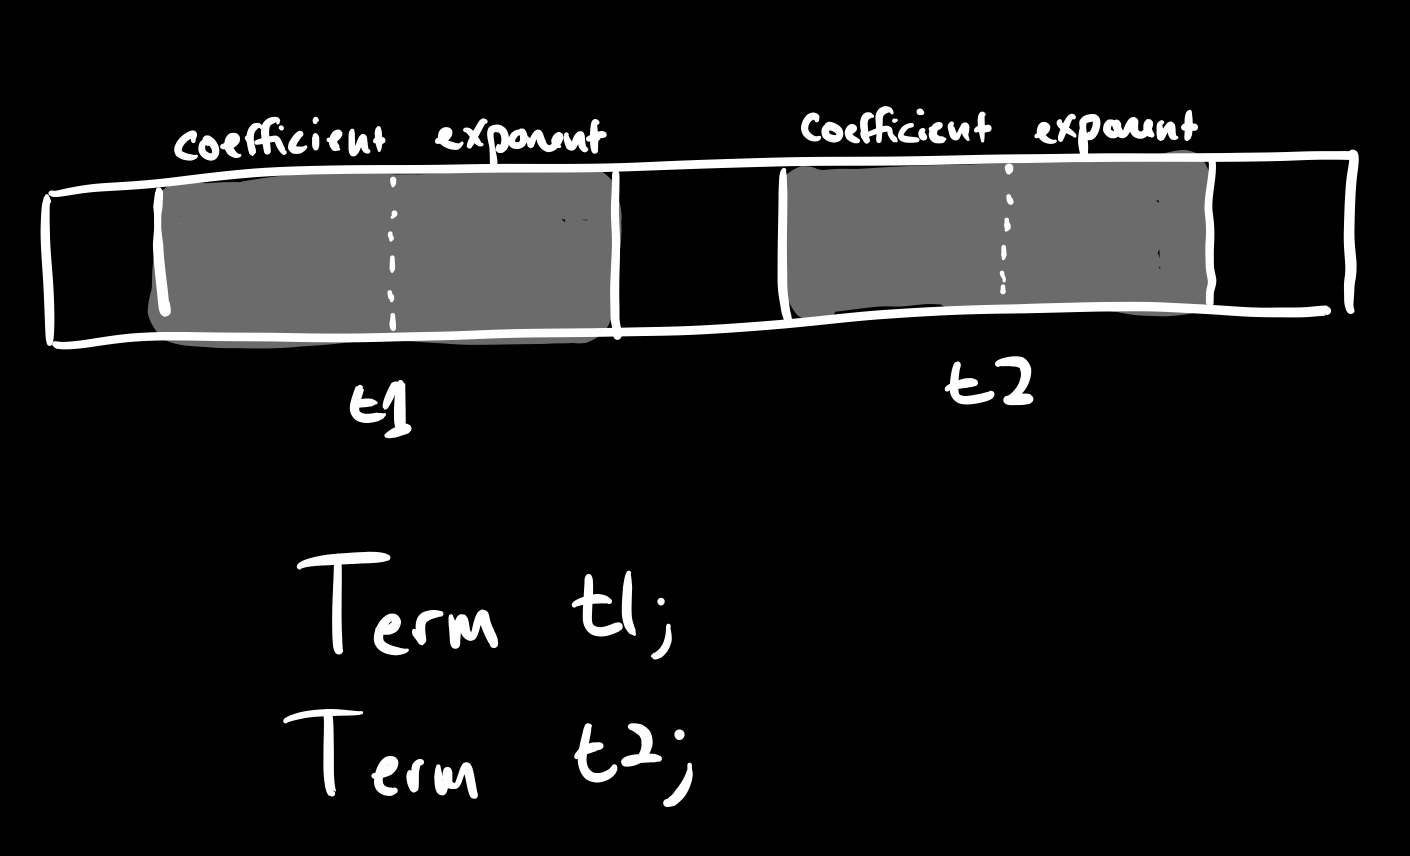 coefficient exponent coefficient exponent
t1 t2
Term t1;
Term t2;